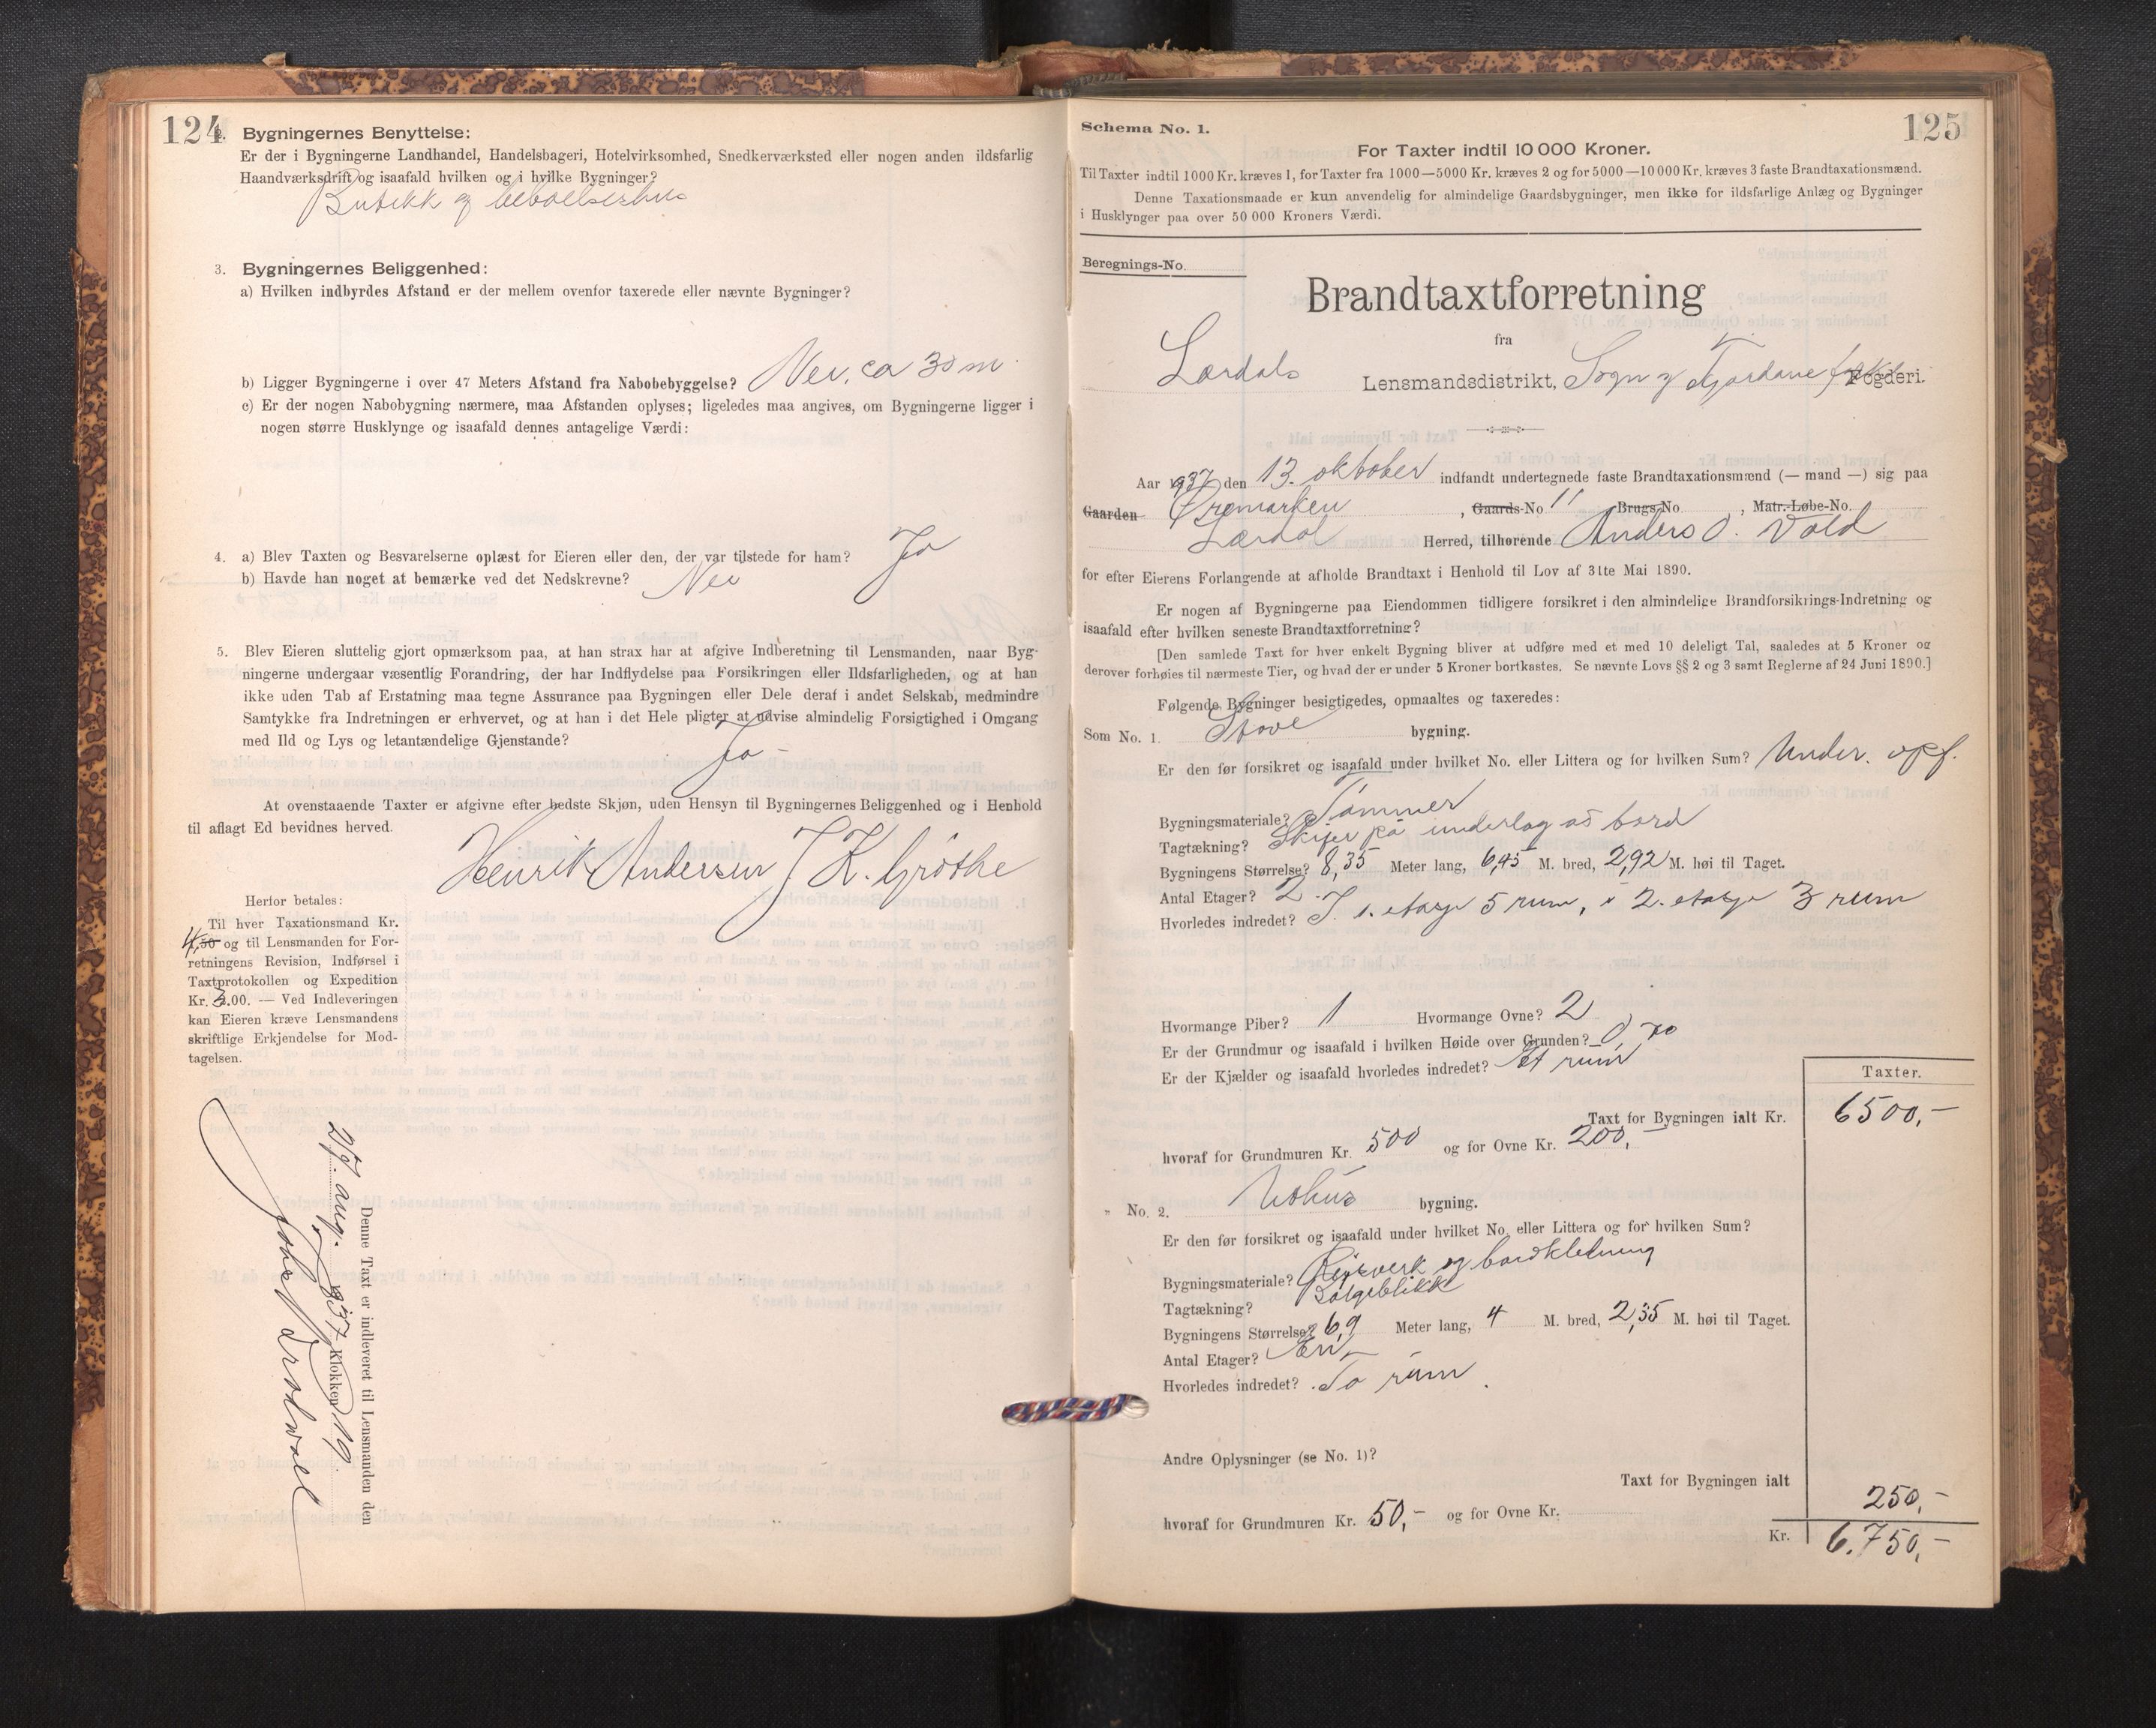 124
2. Bygningernes Benyttelse:
Er der i Bygningerne Landhandel, Handelsbageri, Hotelvirksomhed, Snedkerværksted eller nogen anden ildsfarlig
Haandværksdrift og isaafald hvilken og i hvilke Bygninger?
Butikk og beboelseshus
3. Bygningernes Beliggenhed:
a) Hvilken indbyrdes Afstand er der mellem ovenfor taxerede eller nævnte Bygninger?
b) Ligger Bygningerne i over 47 Meters Afstand fra Nabobebyggelse? Nei, ca 30 m.
c) Er der nogen Nabobygning nærmere, maa Afstanden oplyses; ligeledes maa angives, om Bygningerne ligger i
nogen større Husklynge og isaafald dennes antagelige Værdi:
4. a) Blev Taxten og Besvarelserne oplæst for Eieren eller den, der var tilstede for ham? Ja
b) Havde han noget at bemærke ved det Nedskrevne? Nei
5. Blev Eieren sluttelig gjort opmærksom paa, at han strax har at afgive Indberetning til Lensmanden, naar Byg-
ningerne undergaar væsentlig Forandring, der har Indflydelse paa Forsikringen eller Ildsfarligheden, og at han
ikke uden Tab af Erstatning maa tegne Assurance paa Bygningen eller Dele deraf i andet Selskab, medmindre
Samtykke fra Indretningen er erhvervet, og at han i det Hele pligter at udvise almindelig Forsigtighed i Omgang
med Ild og Lys og letantændelige Gjenstande? Ja -
At ovenstaaende Taxter er afgivne efter bedste Skjøn, uden Hensyn til Bygningernes Beliggenhed og i Henhold
til aflagt Ed bevidnes herved.
Henrik Andersen J K. Grøthe
Herfor betales:
Til hver Taxationsmand Kr.
4,50 og til Lensmanden for For-
retningens Revision, Indførsel i
Taxtprotokollen og Expedition
Kr. 3.00. — Ved Indleveringen
kan Eieren kræve Lensmandens
skriftlige Erkjendelse for Mod-
tagelsen.
Denne Taxt er indleveret til Lensmanden den
27. aug. 1937 Klokken 19.
125
Schema No. 1.
For Taxter indtil 10 000 Kroner.
Til Taxter indtil 1000 Kr. kræves 1, for Taxter fra 1000—5000 Kr. kræves 2 og for 5000—10 000 Kr. kræves 3 faste Brandtaxationsmænd.
Denne Taxationsmaade er kun anvendelig for almindelige Gaardsbygninger, men ikke for ildsfarlige Anlæg og Bygninger
i Husklynger paa over 50 000 Kroners Værdi.
Beregnings-No.
Brandtaxtforretning
fra
Lærdals Lensmandsdistrikt, Sogn og Fjordane fylke Fogderi.
Aar 1937 den 13. oktober indfandt undertegnede faste Brandtaxationsmænd (— mand —) sig paa
Gaarden Øremarken , Gaards-No 11 Brugs-No , Matr.-Løbe-No.
Lærdal Herred, tilhørende Anders O. Vold
for efter Eierens Forlangende at afholde Brandtaxt i Henhold til Lov af 31te Mai 1890.
Er nogen af Bygningerne paa Eiendommen tidligere forsikret i den almindelige Brandforsikrings-Indretning og
isaafald efter hvilken seneste Brandtaxtforretning?
[Den samlede Taxt for hver enkelt Bygning bliver at udføre med et med 10 deleligt Tal, saaledes at 5 Kroner og
derover forhøies til nærmeste Tier, og hvad der er under 5 Kroner bortkastes. Se nævnte Lovs §§ 2 og 3 samt Reglerne af 24 Juni 1890.]
Følgende Bygninger besigtigedes, opmaaltes og taxeredes:
Som No. 1. Stove bygning.
Er den før forsikret og isaafald under hvilket No. eller Littera og for hvilken Sum? Under. opf.
Bygningsmateriale? Tømmer
Tagtækning? Skifer på underlag av bord
Bygningens Størrelse? 8,35 Meter lang, 6,45 M. bred, 2,92 M. høi til Taget.
Antal Etager? 2
Hvorledes indredet? I 1. etasje 5 rum, i 2. etasje 3 rum
Hvormange Piber? 1 Hvormange Ovne? 2
Er der Grundmur og isaafald i hvilken Høide over Grunden? 0,70
Er der Kjælder og isaafald hvorledes indredet? Et rum
Taxter.
Taxt for Bygningen ialt Kr. 6500,-
hvoraf for Grundmuren Kr. 500 og for Ovne Kr. 200,-
" No. 2. Uthus bygning.
Er den før forsikret og isaafald under hvilket No. eller Littera og for hvilken Sum?
Bygningsmateriale? Reisverk og bordkledning
Tagtækning? Bølgeblikk
Bygningens Størrelse? 6,9 Meter lang, 4 M. bred, 2,35 M. høi til Taget.
Antal Etager? En
Hvorledes indredet? To rum
Andre Oplysninger (se No. 1)?
Taxt for Bygningen ialt 250,-
hvoraf for Grundmuren Kr. 50,- og for Ovne Kr.
Kr. 6.750,-